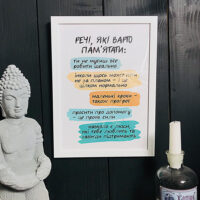 РЕЧІ, ЯКІ ВАРТО
ПАМ'ЯТАТИ:
ти не мусиш все
робити ідеально
інколи щось може йти
не за планом – і це
цілком нормально
маленькі кроки –
також прогрес
просити про допомогу –
це прояв сили
навколо є люди,
які тебе люблять та
завжди підтримають